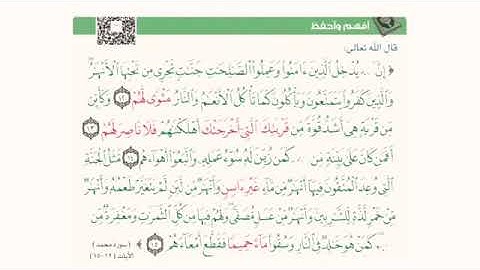 أفهم وأحفظ
قال الله تعالى:
﴿ إِنَّ ... يُدْخِلُ الَّذِينَ ءَامَنُوا وَعَمِلُوا الصَّالِحَاتِ جَنَّاتٍ تَجْرِي مِن تَحْتِهَا الْأَنْهَارُ
وَالَّذِينَ كَفَرُوا يَتَمَتَّعُونَ وَيَأْكُلُونَ كَمَا تَأْكُلُ الْأَنْعَامُ وَالنَّارُ مَثْوًى لَّهُمْ ﴿١٢﴾ وَكَأَيِّن
مِّن قَرْيَةٍ هِيَ أَشَدُّ قُوَّةً مِّن قَرْيَتِكَ الَّتِي أَخْرَجَتْكَ أَهْلَكْنَاهُمْ فَلَا نَاصِرَ لَهُمْ ﴿١٣﴾
أَفَمَن كَانَ عَلَى بَيِّنَةٍ مِّن ... كَمَن زُيِّنَ لَهُ سُوءُ عَمَلِهِ وَاتَّبَعُوا أَهْوَاءَهُم ﴿١٤﴾ مَّثَلُ الْجَنَّةِ
الَّتِي وُعِدَ الْمُتَّقُونَ فِيهَا أَنْهَارٌ مِّن مَّاءٍ غَيْرِ ءَاسِنٍ وَأَنْهَارٌ مِّن لَّبَنٍ لَّمْ يَتَغَيَّرْ طَعْمُهُ وَأَنْهَارٌ
مِّنْ خَمْرٍ لَّذَّةٍ لِّلشَّارِبِينَ وَأَنْهَارٌ مِّنْ عَسَلٍ مُّصَفًّى وَلَهُمْ فِيهَا مِن كُلِّ الثَّمَرَاتِ وَمَغْفِرَةٌ مِّن
... كَمَنْ هُوَ خَالِدٌ فِي النَّارِ وَسُقُوا مَاءً حَمِيمًا فَقَطَّعَ أَمْعَاءَهُمْ ﴿١٥﴾ ﴾
(سورة محمد)
الآيات: (١٢-١٥)